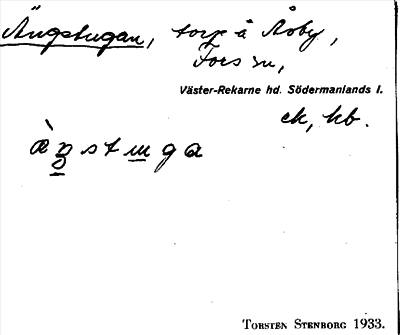 Ängstugan, torp å Åsby,
Fors sn,
Väster-Rekarne hd. Södermanlands l.
ek, kb.
TORSTEN STENBORG 1933.